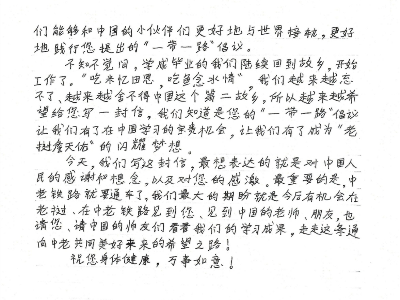 们能够和中国的小伙伴们更好地与世界接轨,更好
地践行您提出的“一带一路”倡议。
不知不觉间,学成毕业的我们陆续回到故乡,开始
工作了。“吃米忆田恩,吃鱼念水情”,我们越来越忘
不了、越来越舍不得中国这个第二故乡,所以越来越希
望给您写一封信,我们知道是您的“一带一路”倡议
让我们有了在中国学习的宝贵机会,让我们有了成为“老
挝詹天佑”的闪耀梦想。
今天,我们写这封信,最想表达的就是对中国人
民的感谢和想念,以及对您的感激。最重要的是,中
老铁路就要通车了,我们最大的期盼就是今后有机会在
老挝、在中老铁路见到您、见到中国的老师、朋友,也
请您、请中国的师友们看看我们的学习成果,走走这条通
向中老共同美好未来的希望之路!
祝您身体健康,万事如意!